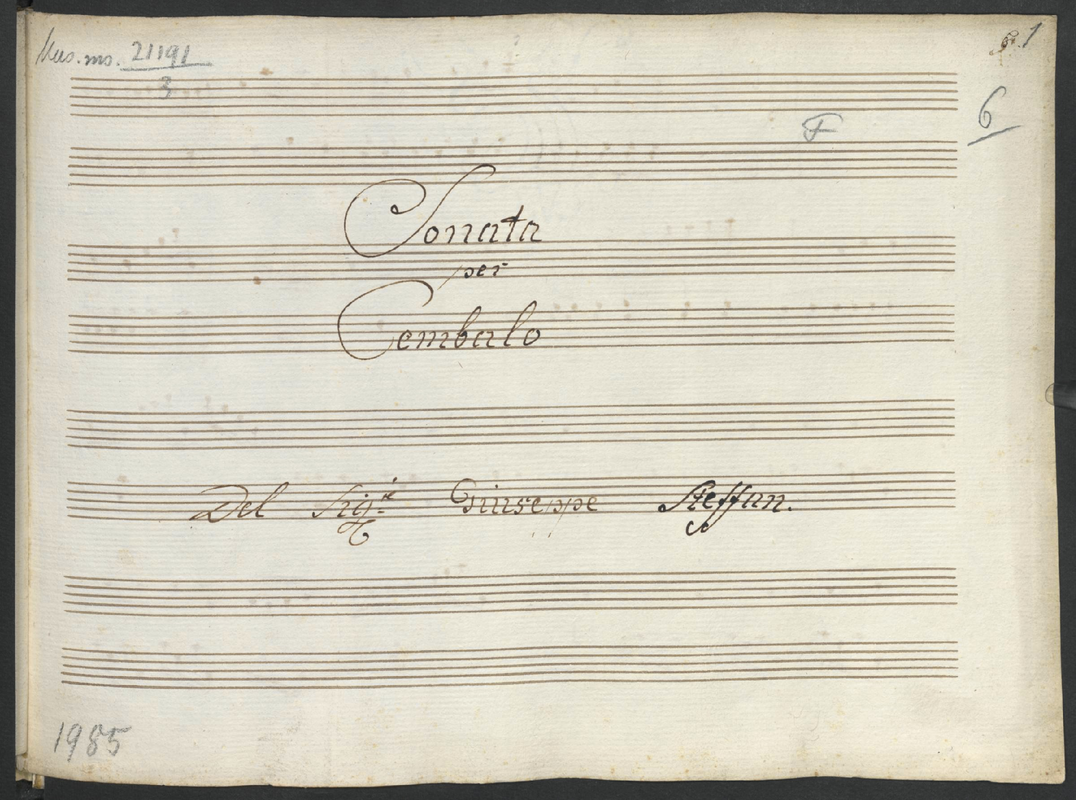 Mus. ms. 21191
3
1
6
F
Sonata
per
Cembalo
Del Sig:re Giuseppe Steffan.
1985